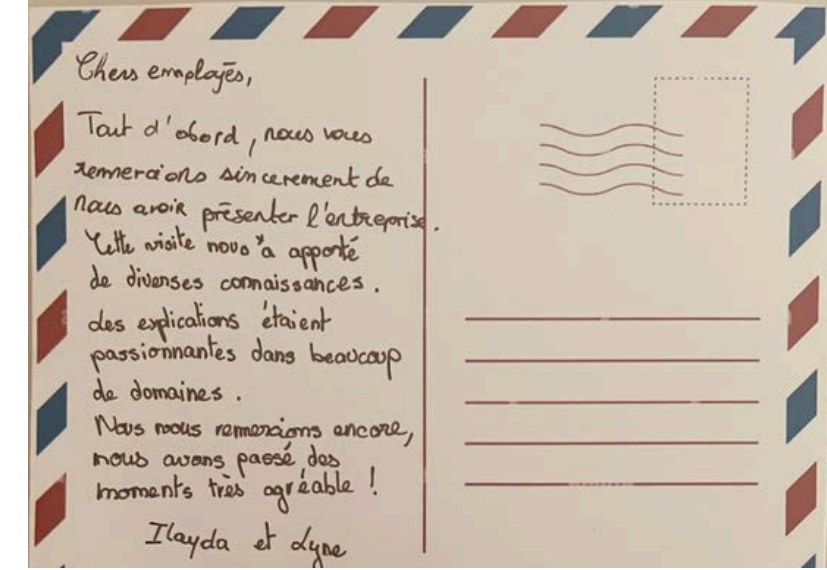 Chers employés,
Tout d'abord, nous vous
remercions sincerement de
nous avoir présenter l'entreprise.
Cette visite nous a apporté
de diverses connaissances.
Les explications étaient
passionnantes dans beaucoup
de domaines.
Nous vous remercions encore,
nous avons passé des
moments très agréable !
Ilayda et Lyne